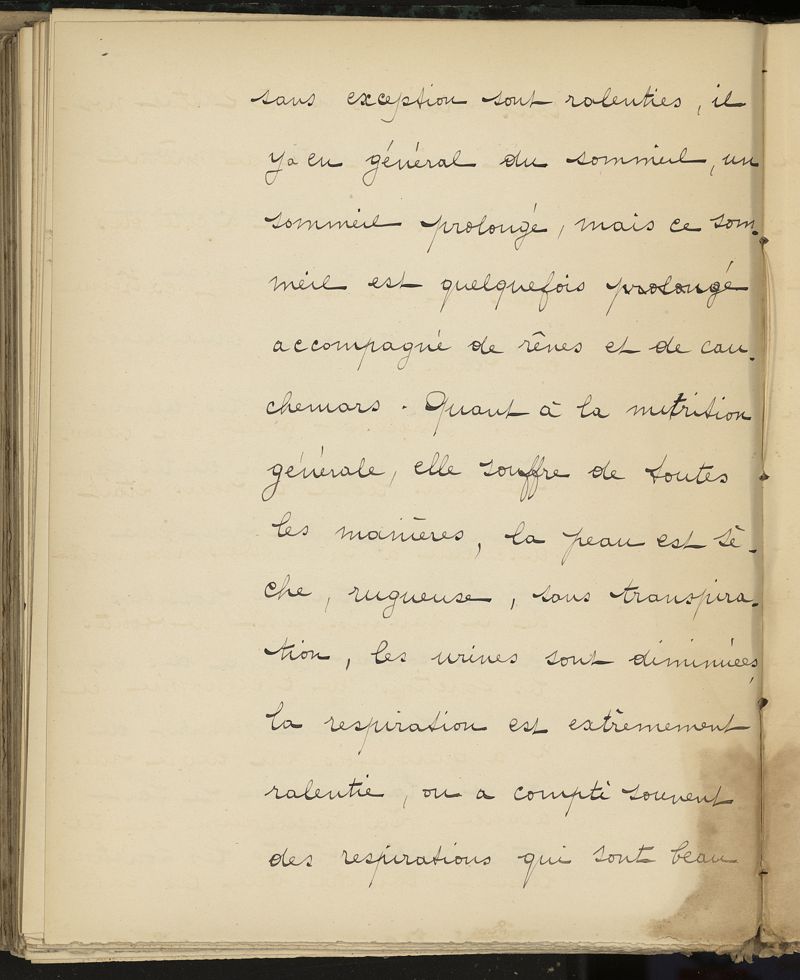 sans exception sont ralenties, il
y a eu général du sommeil, un
sommeil prolongé, mais ce som-
meil est quelquefois prolongé
accompagné de rêves et de cau-
chemars. Quant à la nutrition
générale, elle souffre de toutes
les manières, la peau est sè-
che, rugueuse, sans transpira-
tion, les urines sont diminuées,
la respiration est extrêmement
ralentie, on a compté souvent
des respirations qui sont beau